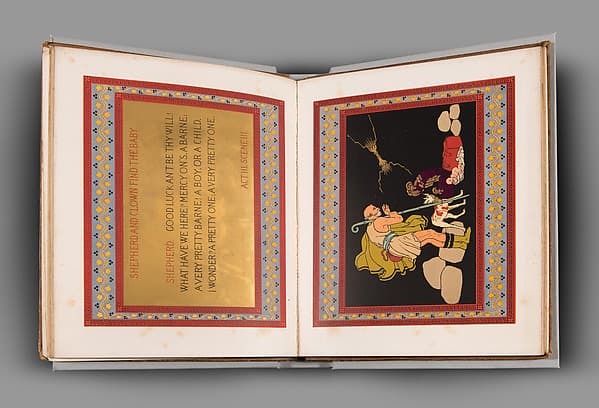 SHEPHERD AND CLOWN FIND THE BABY
SHEPHERD. GOOD LUCK AN'T BE THY WILL!
WHAT HAVE WE HERE? MERCY ON'S, A BARNE;
A VERY PRETTY BARNE! A BOY, OR A CHILD,
I WONDER? A PRETTY ONE; A VERY PRETTY ONE.
ACT III. SCENE III.